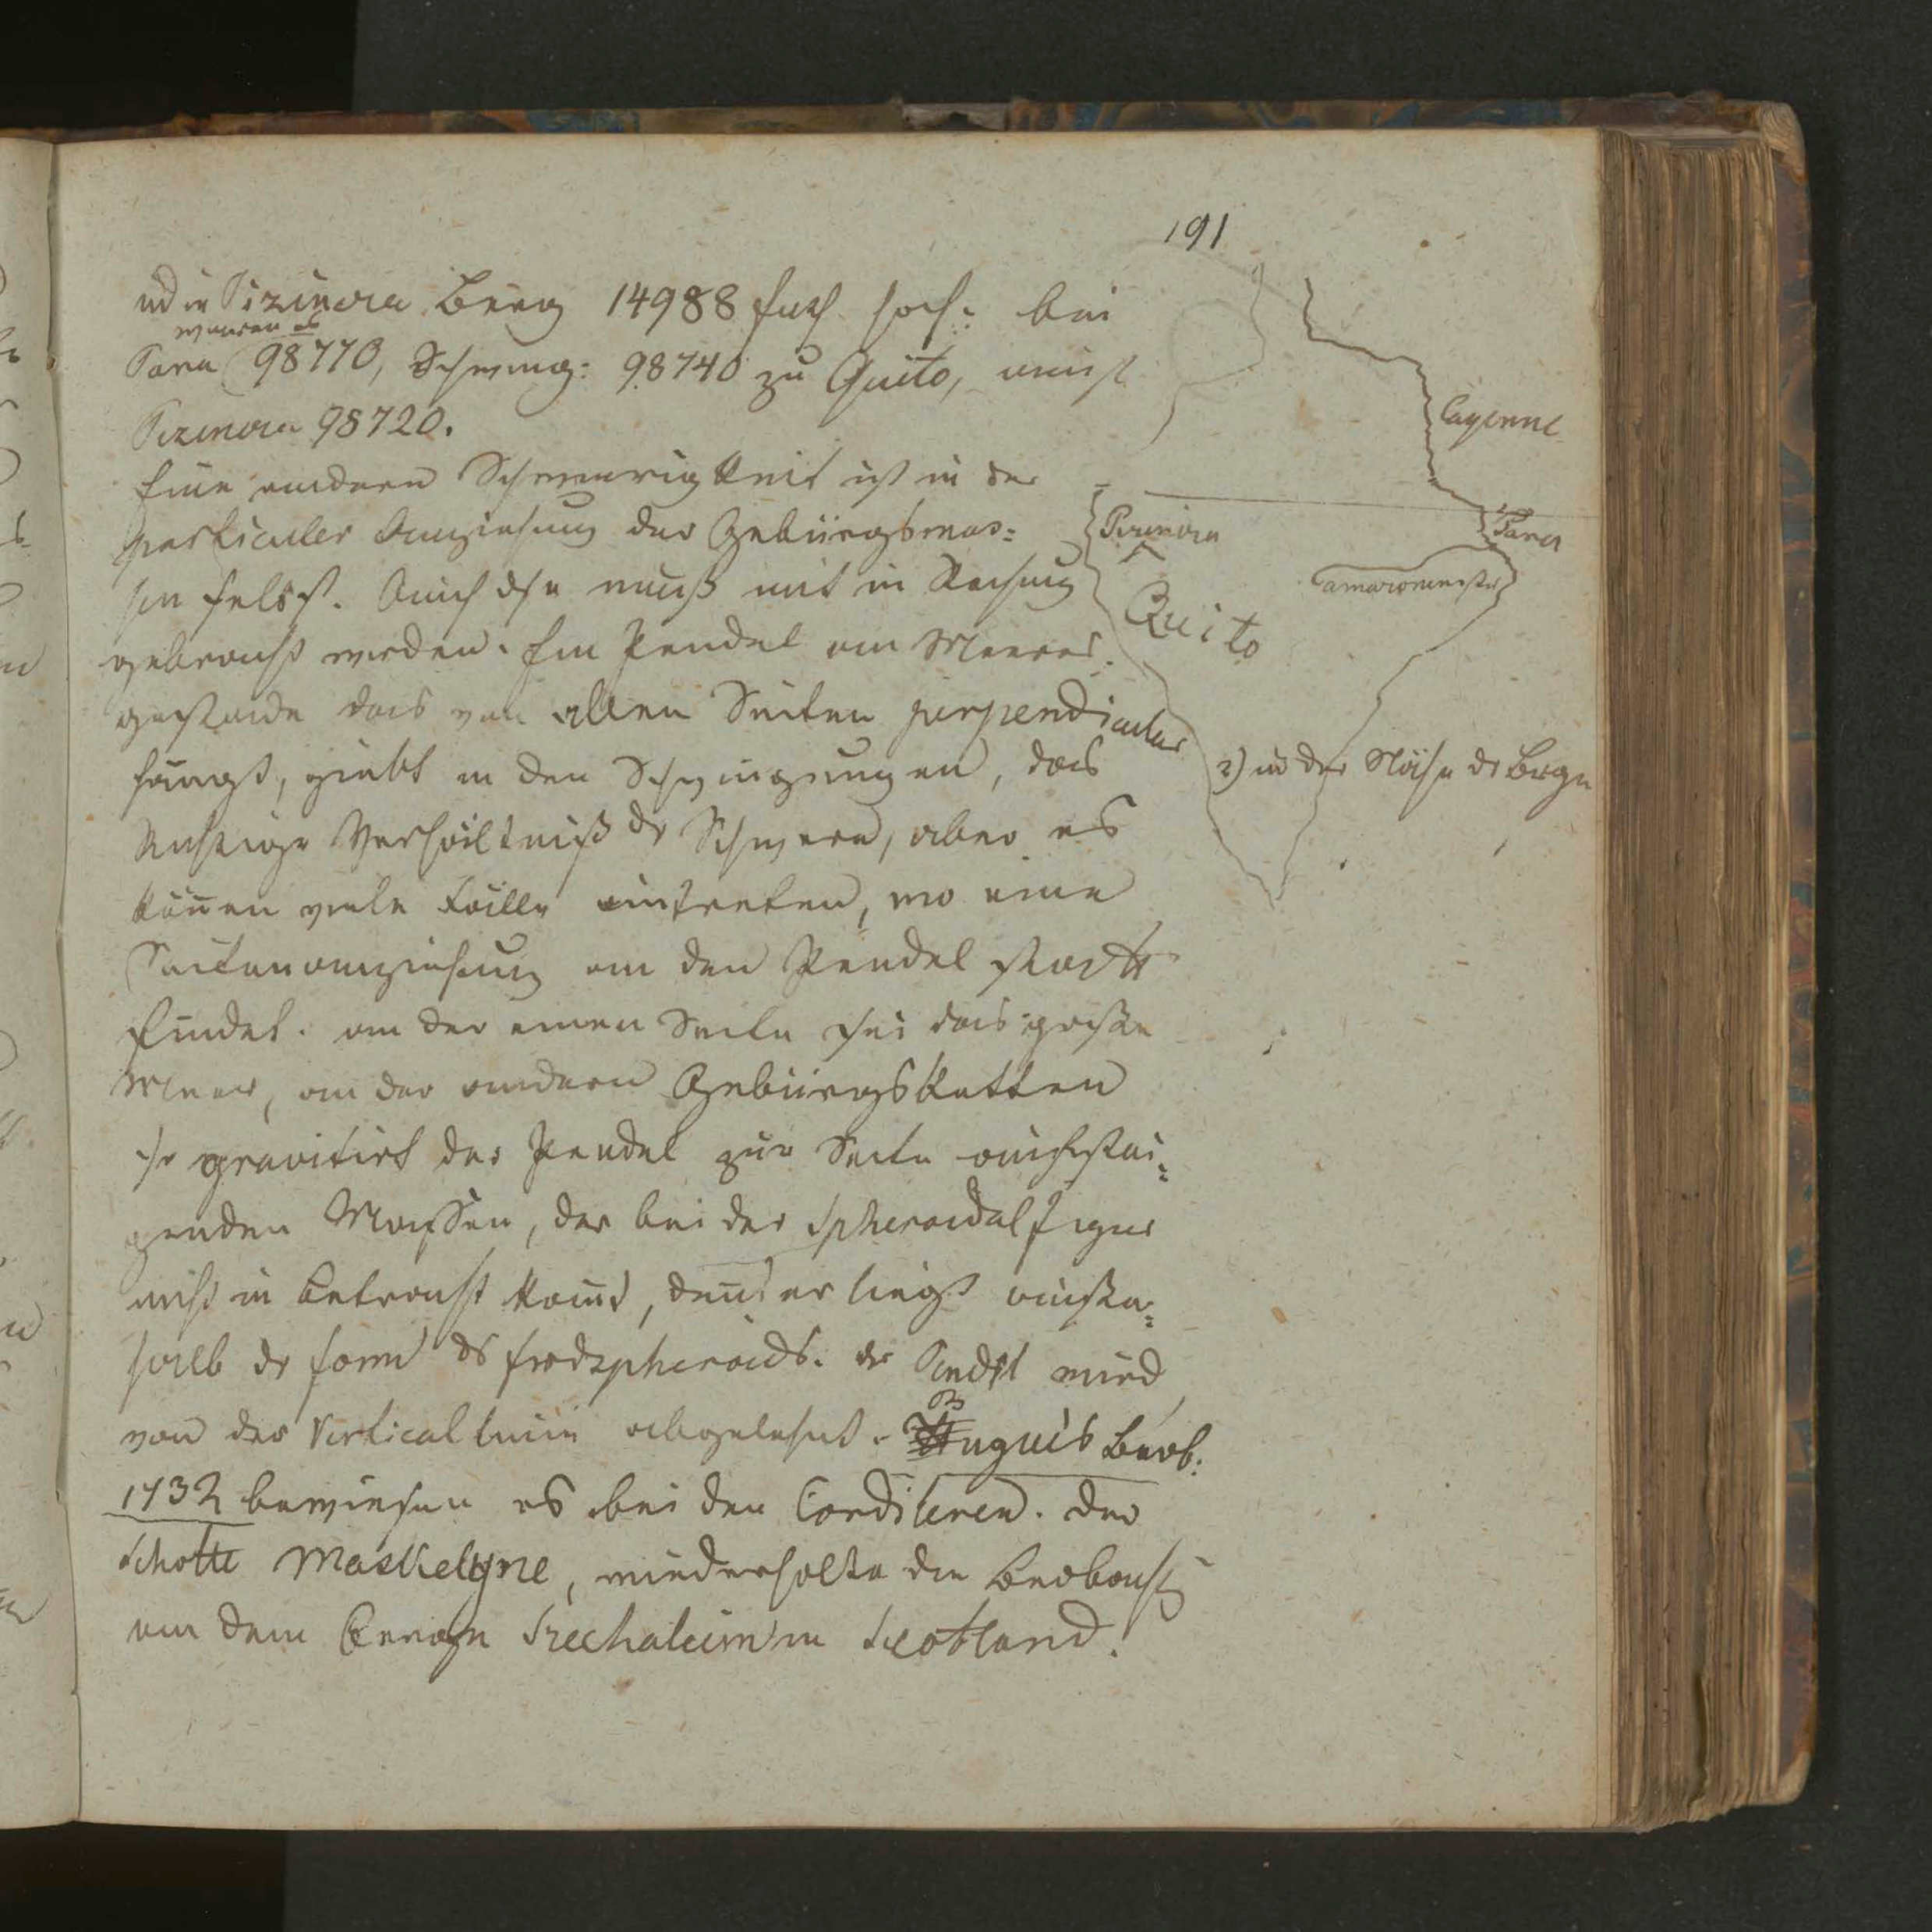 191
und in Pizincra Berg 14988 fuß hoch: bei
waren es
Para 98770, Schwing: 98740 zu Quito, auf
Pizincra 98720.
Eine andere Schwierigkeit ist in der
particuler Anziehung der Gebürgsmas=
sen selbst. Auch dse muß mit in Rechnung
gebracht werden. Ein Pendel am Meeres
gestade das von allen Seiten perpendicular
hängt, giebt in den Schwingungen, das
Richtige Verhältniß dr Schwere, aber es
können viele Fälle eintreten, wo eine
Seitenanziehung an den Pendel statt
findet. an der einen Seite sei das große
Meer, an der andern Gebürgsketten
so gravitirt der Pendel zur Seite aufstei=
genden Massen, der bei der Spheroidalfigur
nicht in Betracht kommt, denn er liegt außer=
halb dr Form ds Erdspheroids. dr Pendel wird
von der Verticallinie abgelenkt. Buguis Beob:
1732 bewiesen es bei den Cordileren. Der
Schotte Maskelyne, wiederholte die Beobacht
an dem Berge Sechalium in Scotland.
Cayenne
Para
Pizincra
Amazonenfluß
Quito
2) in der Nähe dr Berge